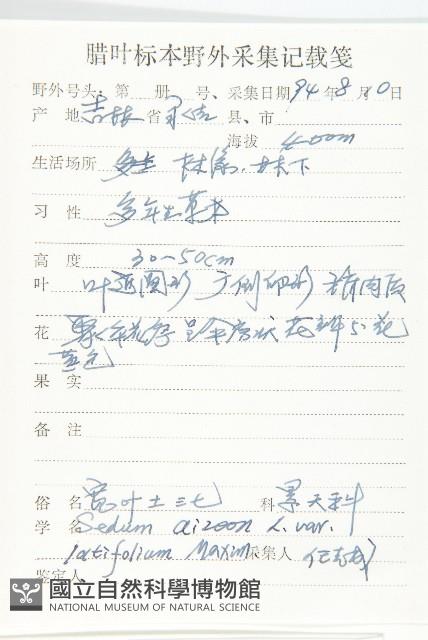 腊叶标本野外采集记载笺
野外号头: 第 册 号、采集日期 94 年 8 月 10 日
产 地 吉林 省 县、市
海拔 400m
生活场所 林缘. 林下
习 性 多年生草本
高 度 30~50cm
叶 叶 圆形 倒卵形
花 聚伞花序 呈伞房状 花瓣5. 花
黄色
果 实
备 注
俗 名 宽叶土三七 科 景天科
学 名 Sedum aizoon L. var.
latifolium Maxim 采集人
鉴定人
國立自然科學博物館
NATIONAL MUSEUM OF NATURAL SCIENCE